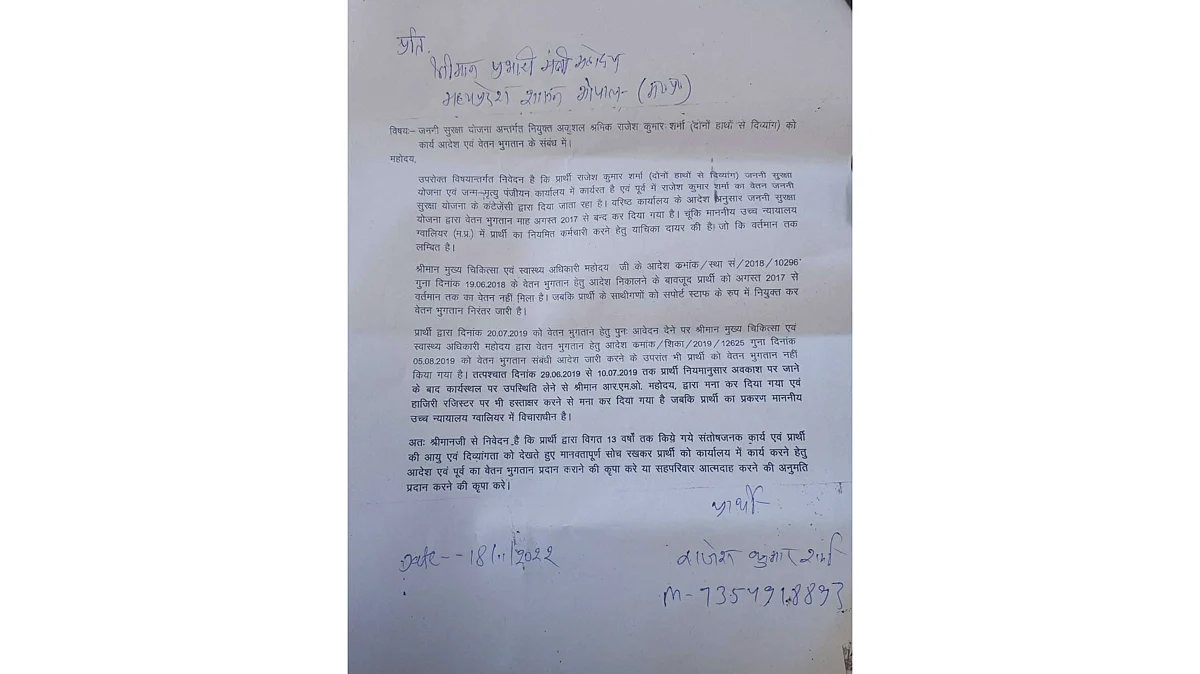 प्रति,
श्रीमान प्रभारी मंत्री महोदय
मध्यप्रदेश शासन भोपाल- (म०प्र०)
विषय:- जननी सुरक्षा योजना अन्तर्गत नियुक्त अकुशल श्रमिक राजेश कुमार शर्मा (दोनों हाथों से दिव्यांग) को
कार्य आदेश एवं वेतन भुगतान के संबंध में।
महोदय,
उपरोक्त विषयान्तर्गत निवेदन है कि प्रार्थी राजेश कुमार शर्मा (दोनों हाथों से दिव्यांग) जननी सुरक्षा
योजना एवं जन्म-मृत्यु पंजीयन कार्यालय में कार्यरत है एवं पूर्व में राजेश कुमार शर्मा का वेतन जननी
सुरक्षा योजना के कंटेजेंसी द्वारा दिया जाता रहा है। वरिष्ठ कार्यालय के आदेश अनुसार जननी सुरक्षा
योजना द्वारा वेतन भुगतान माह अगस्त 2017 से बन्द कर दिया गया है। चूंकि माननीय उच्च न्यायालय
ग्वालियर (म.प्र.) में प्रार्थी का नियमित कर्मचारी करने हेतु याचिका दायर की है। जो कि वर्तमान तक
लम्बित है।
श्रीमान मुख्य चिकित्सा एवं स्वास्थ्य अधिकारी महोदय जी के आदेश कमांक/स्था सं/2018/10296
गुना दिनांक 19.06.2018 के वेतन भुगतान हेतु आदेश निकालने के बावजूद प्रार्थी को अगस्त 2017 से
वर्तमान तक का वेतन नहीं मिला है। जबकि प्रार्थी के साथीगणों को सपोर्ट स्टाफ के रुप में नियुक्त कर
वेतन भुगतान निरंतर जारी है।
प्रार्थी द्वारा दिनांक 20.07.2019 को वेतन भुगतान हेतु पुनः आवेदन देने पर श्रीमान मुख्य चिकित्सा एवं
स्वास्थ्य अधिकारी महोदय द्वारा वेतन भुगतान हेतु आदेश कमांक/शिका/2019/12625 गुना दिनांक
05.08.2019 को वेतन भुगतान संबंधी आदेश जारी करने के उपरांत भी प्रार्थी को वेतन भुगतान नहीं
किया गया है। तत्पश्चात दिनांक 29.06.2019 से 10.07.2019 तक प्रार्थी नियमानुसार अवकाश पर जाने
के बाद कार्यस्थल पर उपस्थिति लेने से श्रीमान आर.एम.ओ. महोदय, द्वारा मना कर दिया गया एवं
हाजिरी रजिस्टर पर भी हस्ताक्षर करने से मना कर दिया गया है जबकि प्रार्थी का प्रकरण माननीय
उच्च न्यायालय ग्वालियर में विचाराधीन है।
अतः श्रीमानजी से निवेदन है कि प्रार्थी द्वारा विगत 13 वर्षों तक किये गये संतोषजनक कार्य एवं प्रार्थी
की आयु एवं दिव्यांगता को देखते हुए मानवतापूर्ण सोच रखकर प्रार्थी को कार्यालय में कार्य करने हेतु
आदेश एवं पूर्व का वेतन भुगतान प्रदान कराने की कृपा करे या सहपरिवार आत्मदाह करने की अनुमति
प्रदान करने की कृपा करे।
प्रार्थी
Date-- 18/11/2022
राजेश कुमार शर्मा
M-